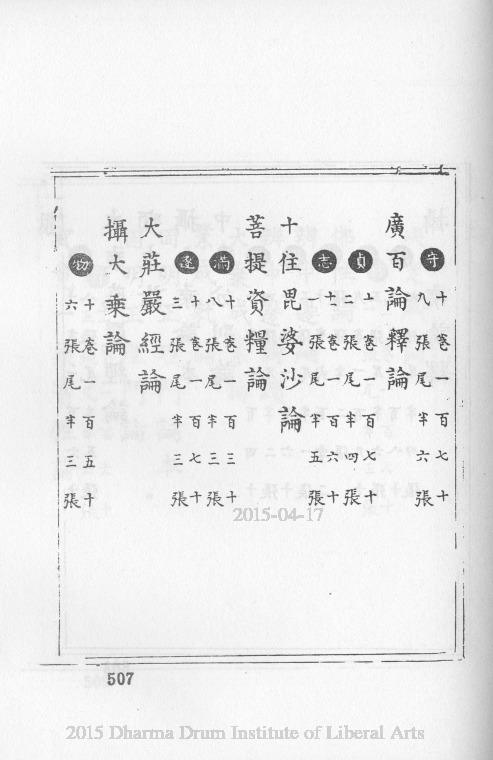 守
十卷一百七十
九張尾半六張
廣百論釋論
貞
卷一百七十
二張尾半四張
志
卷一百六十
一張尾半五張
十住毘婆沙論
菩提資糧論
滿
十卷一百三十
八張尾半三張
逐
十卷一百七十
三張尾半三張
大莊嚴經論
攝大乘論
物
十卷一百五十
六張尾半三張
2015-04-17
507
2015 Dharma Drum Institute of Liberal Arts